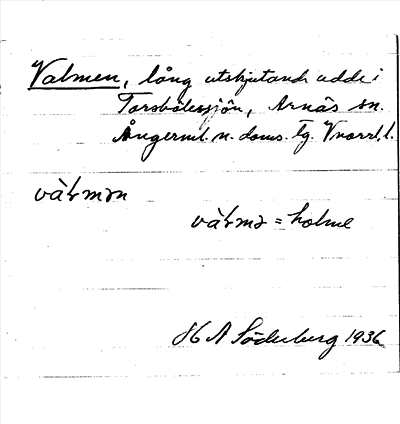 Valmen, lång utskjutande udde i
Tarsbölessjön, Arnäs sn.
Ångerml. n. doms. tg. Vnorrl. l.
vàɫmən
vàɫmə = holme
H A Söderberg 1936